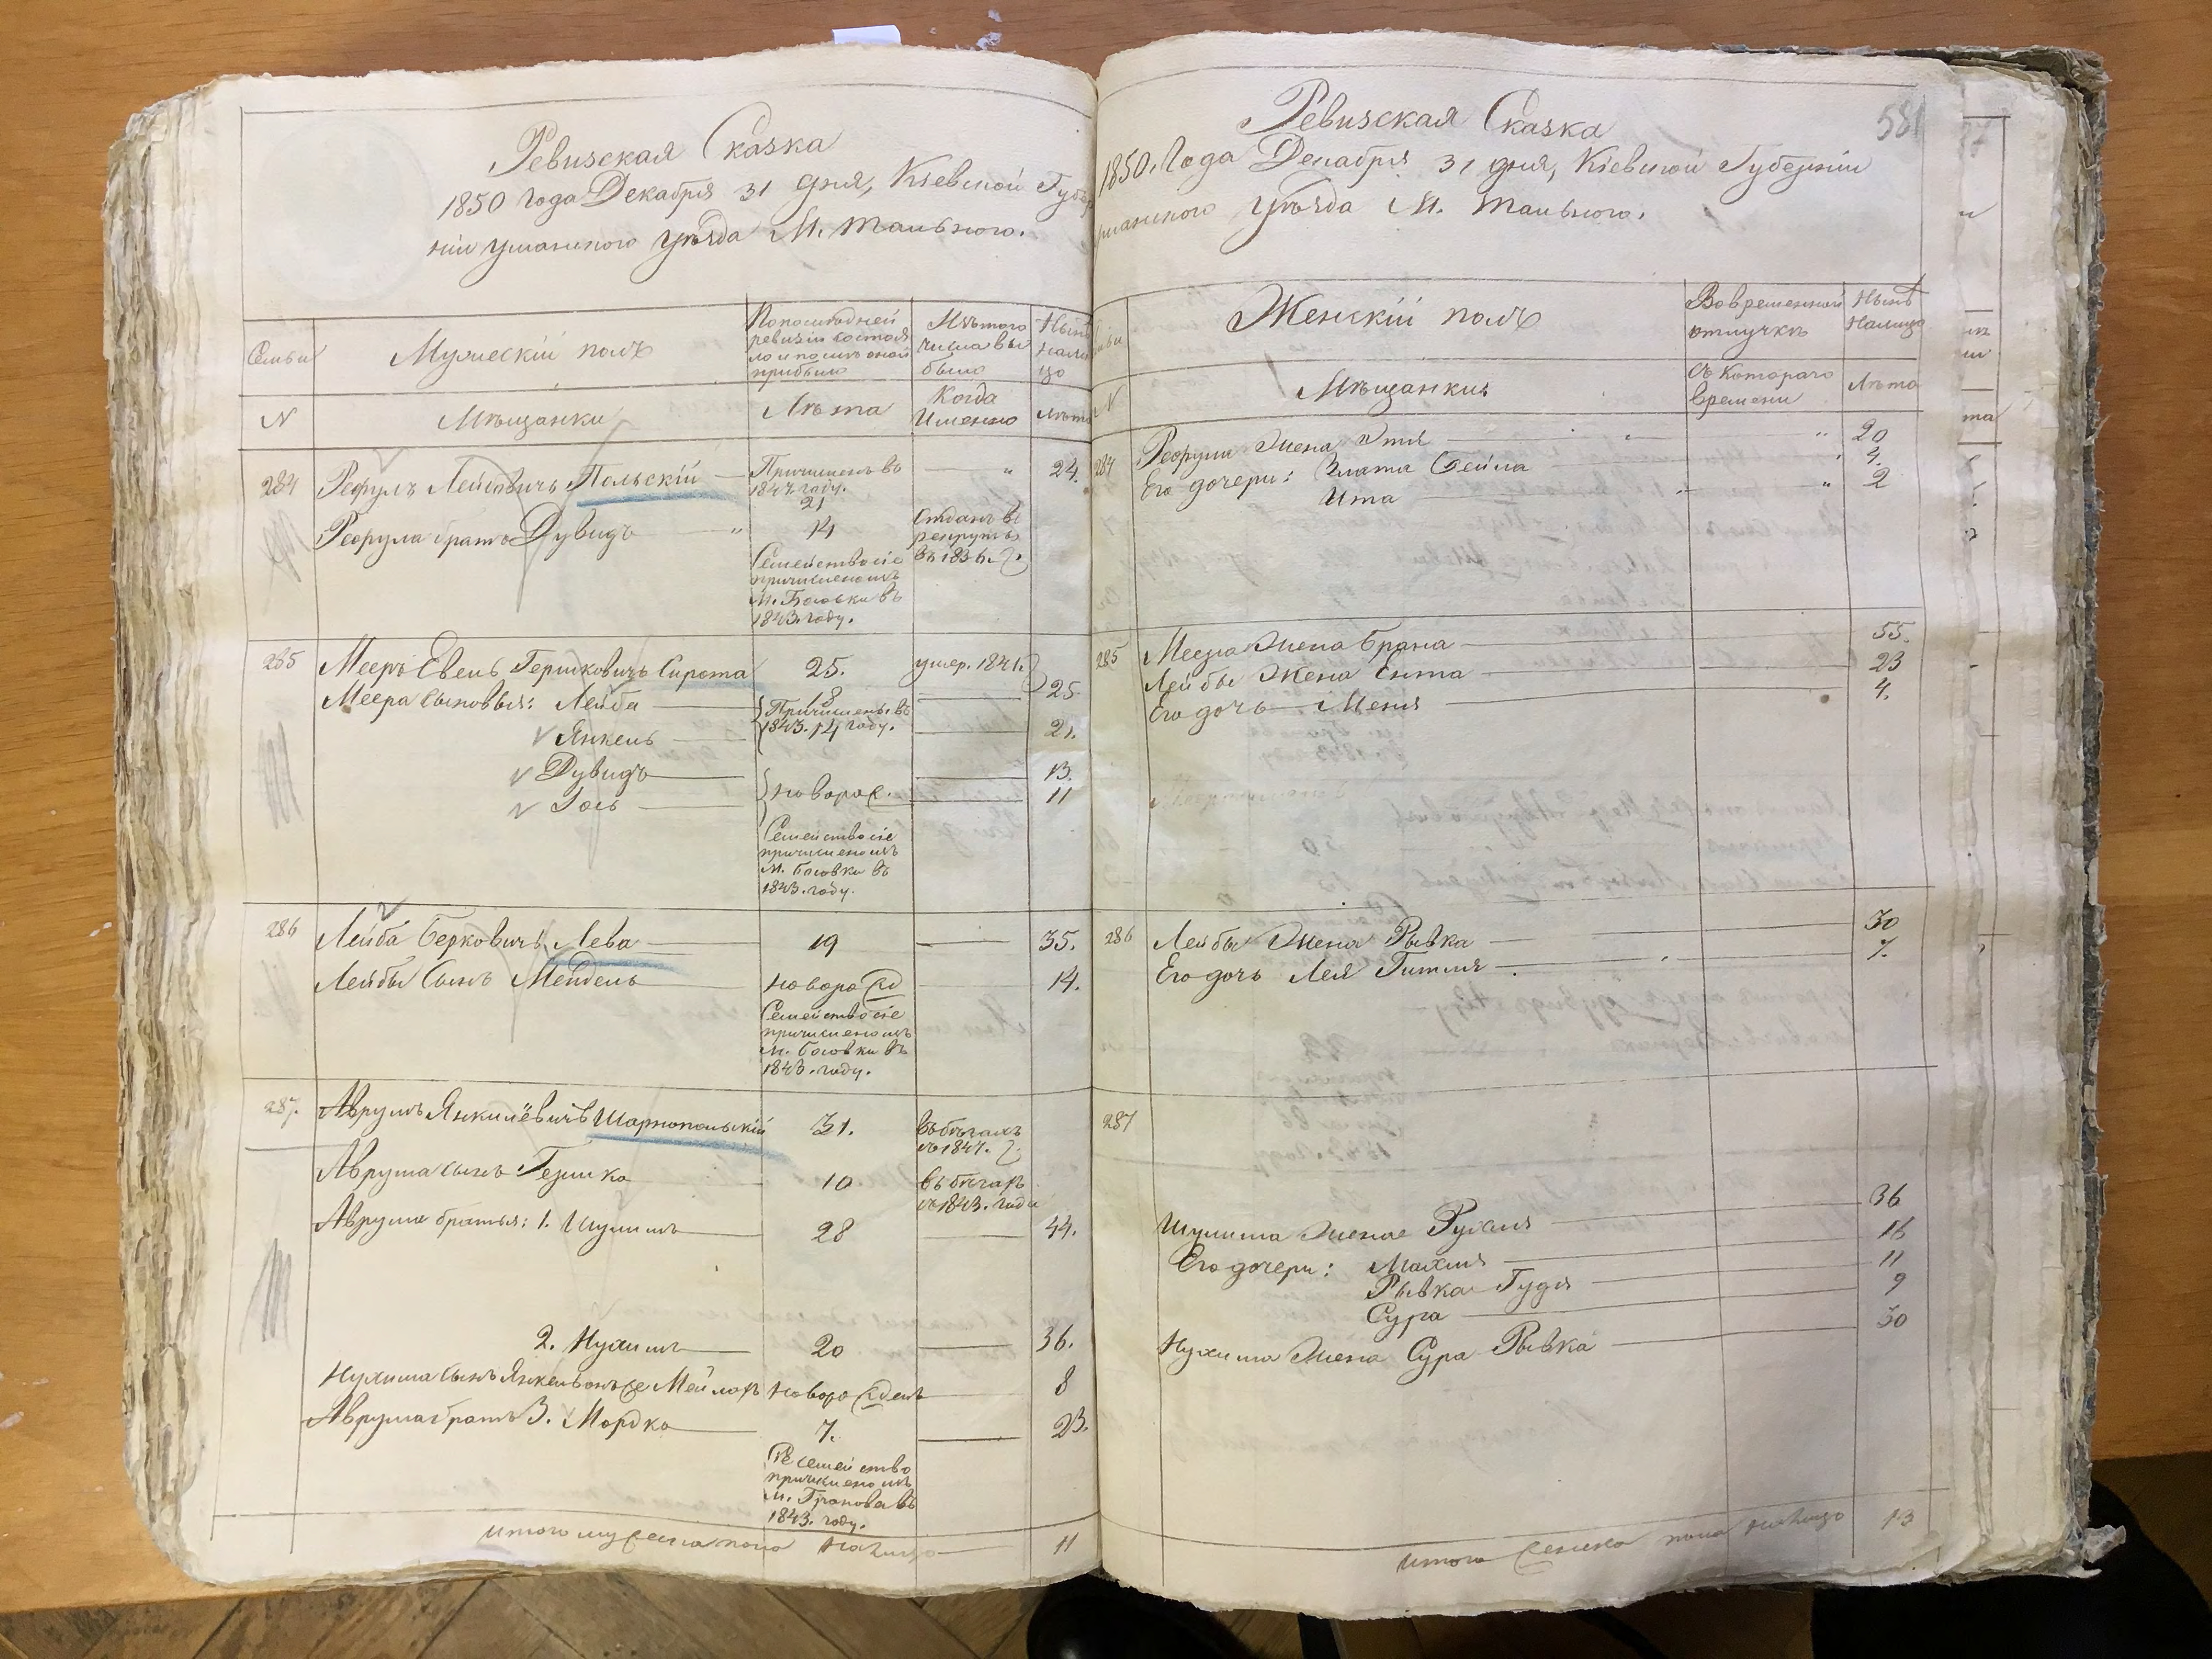 Ревизская Сказка
1850 Года Декабря 31 дня, Кіевской Губер
ніи уманского уѣзда М. Тального.
Семьи
Мужескій полъ
По последней
ревизіи состоя
ло и после оной
прибыло
Изъ того
числа вы
было
Нынѣ
нали
цо
N
Мѣщанки
Лѣта
Когда
Именно
Лѣта
284 Рефулъ Лейбовичъ Польскій Причисленъ въ 24.
1847 году.
21
Рефула братъ Дувидъ " 14 Отданъ въ
рекруты
въ 1836.
Семейство сіе
причислено изъ
м.
1843. году.
285 Мееръ Евель Гершковичъ Сирота 25. умер. 1841.
Меера сыновья: Лейба 18 25
Причислены въ
1843. 14 году.
Янкель 21.
Дувидъ 13.
Іось новорож. 11
Семейство сіе
причислено изъ
м. Босовки въ
1843. году.
286 Лейба Берковичъ Лева 19 35.
Лейбы Сынъ Мендель новорожд 14.
Семейство сіе
причислено изъ
м. Босовки въ
1843. году.
287. Аврумъ Янкилёвичъ Шарнопольскій 31. въ бѣгахъ
съ 1847.
Аврума сынъ Гершко 10 въ бѣгахъ
съ 1843. года
Аврума братья: 1. Шулимъ 28 44.
2. Нухимъ 20 36.
Нухима Сынъ Янкель онъ же Мейлахъ новорожденъ 8
Аврума братъ 3. Мордко 7. 23.
Сіе семейство
причислено изъ
м. Гранова въ
1843. году.
итого мужеска пола налицо 11
581
Ревизская Сказка
1850. Года Декабря 31 дня, Кіевской Губерніи
уманского уѣзда М. Тального.
Женскій полъ
Во временной
отлучкѣ
Нынѣ
налицо
N
Мѣщанкия
Съ котораго
времени
Лѣта
284 Рефула Жена Этя 20
Его дочери: Злата Бейла 4.
Ита 2
285 Меера Жена Брана 55.
Лейбы Жена Ента 23
Его дочь Меня 4.
286 Лейбы Жена Рывка 30
Его дочь Лея Гитля 7.
287
Шулима жена Рухля 36
Его дочери: Махля 16
Рывка Гудя 11
Сура 9
Нухима жена Сура Рывка 30
итого женска пола налицо 13